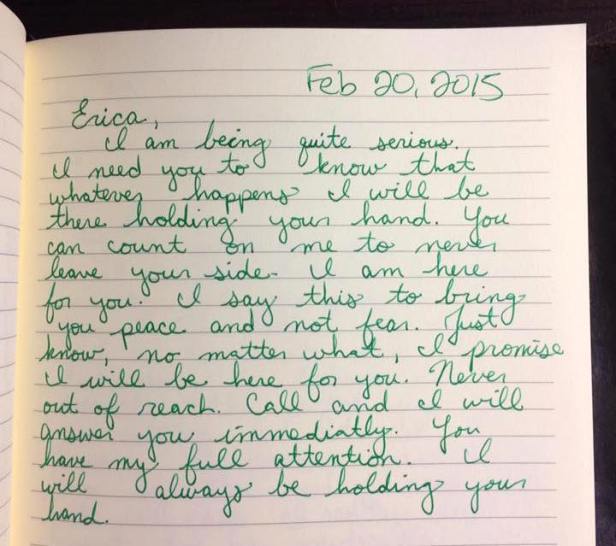 Feb 20, 2015
Erica,
I am being quite serious.
I need you to know that
whatever happens I will be
there holding your hand. You
can count on me to never
leave your side. I am here
for you. I say this to bring
you peace and not fear. Just
know, no matter what, I promise
I will be here for you. Never
out of reach. Call and I will
answer you immediatly. You
have my full attention. I
will always be holding your
hand.